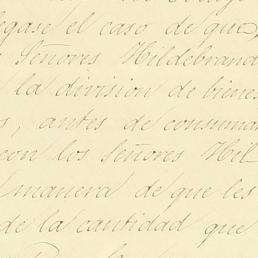 llegase el caso de que,
Señores Hildebrand
la division de bienes
s, antes de consumar
con los Señores Hil
manera de que les
de la cantidad que